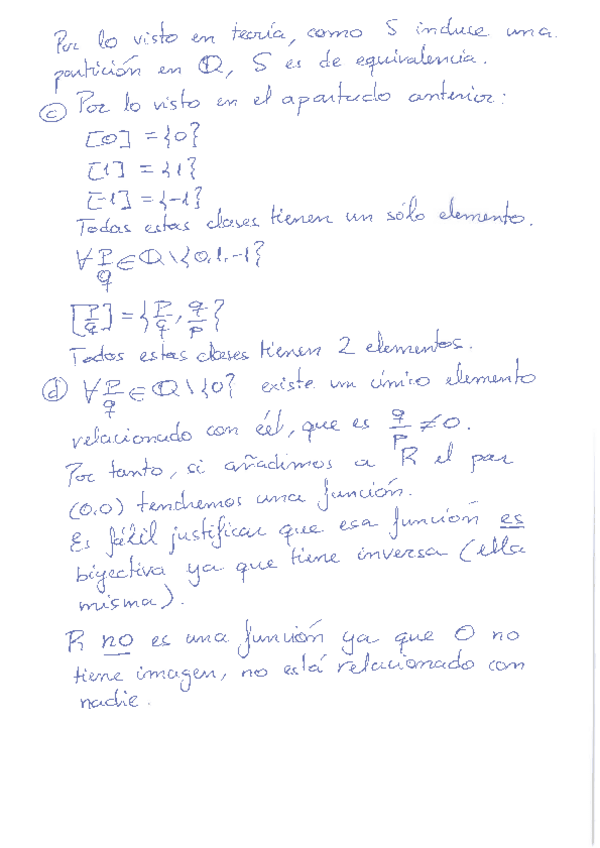 Por lo visto en teoría, como S induce una
partición en ℚ, S es de equivalencia.
ⓒ Por lo visto en el apartado anterior:
[0] = {0}
[1] = {1}
[-1] = {-1}
Todas estas clases tienen un sólo elemento.
∀ p/q ∈ ℚ\{0,1,-1}
[p/q] = {p/q, q/p}
Todas estas clases tienen 2 elementos.
ⓓ ∀ p/q ∈ ℚ\{0} existe un único elemento
relacionado con éel, que es q/p ≠ 0.
Por tanto, si añadimos a R el par
(0,0) tendremos una función.
Es fácil justificar que esa función es
biyectiva ya que tiene inversa (ella
misma).
R no es una función ya que 0 no
tiene imagen, no está relacionado con
nadie.